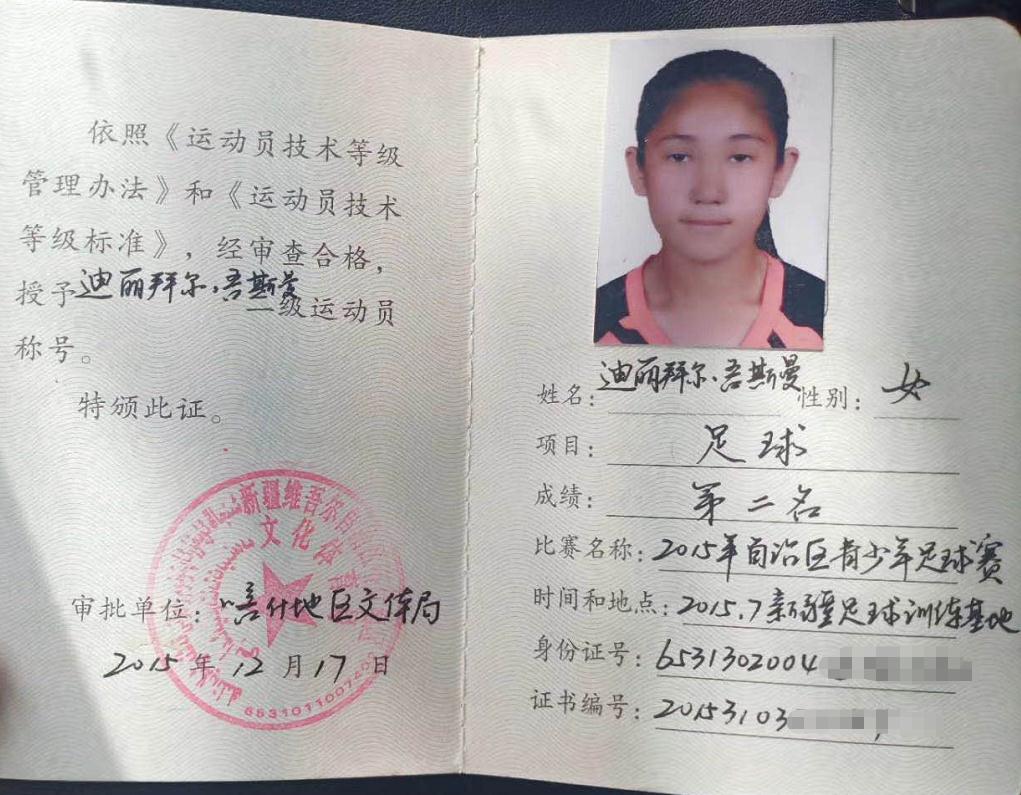 依照《运动员技术等级
管理办法》和《运动员技术
等级标准》，经审查合格，
授予迪丽拜尔·吾斯曼
二级运动员
称号。
特颁此证。
新疆维吾尔自
文化体育
审批单位：喀什地区文体局
2015年12月17日
姓名：迪丽拜尔·吾斯曼 性别：女
项目：足球
成绩：第二名
比赛名称：2015年自治区青少年足球赛
时间和地点：2015.7新疆足球训练基地
身份证号：6531302004
证书编号：20153103